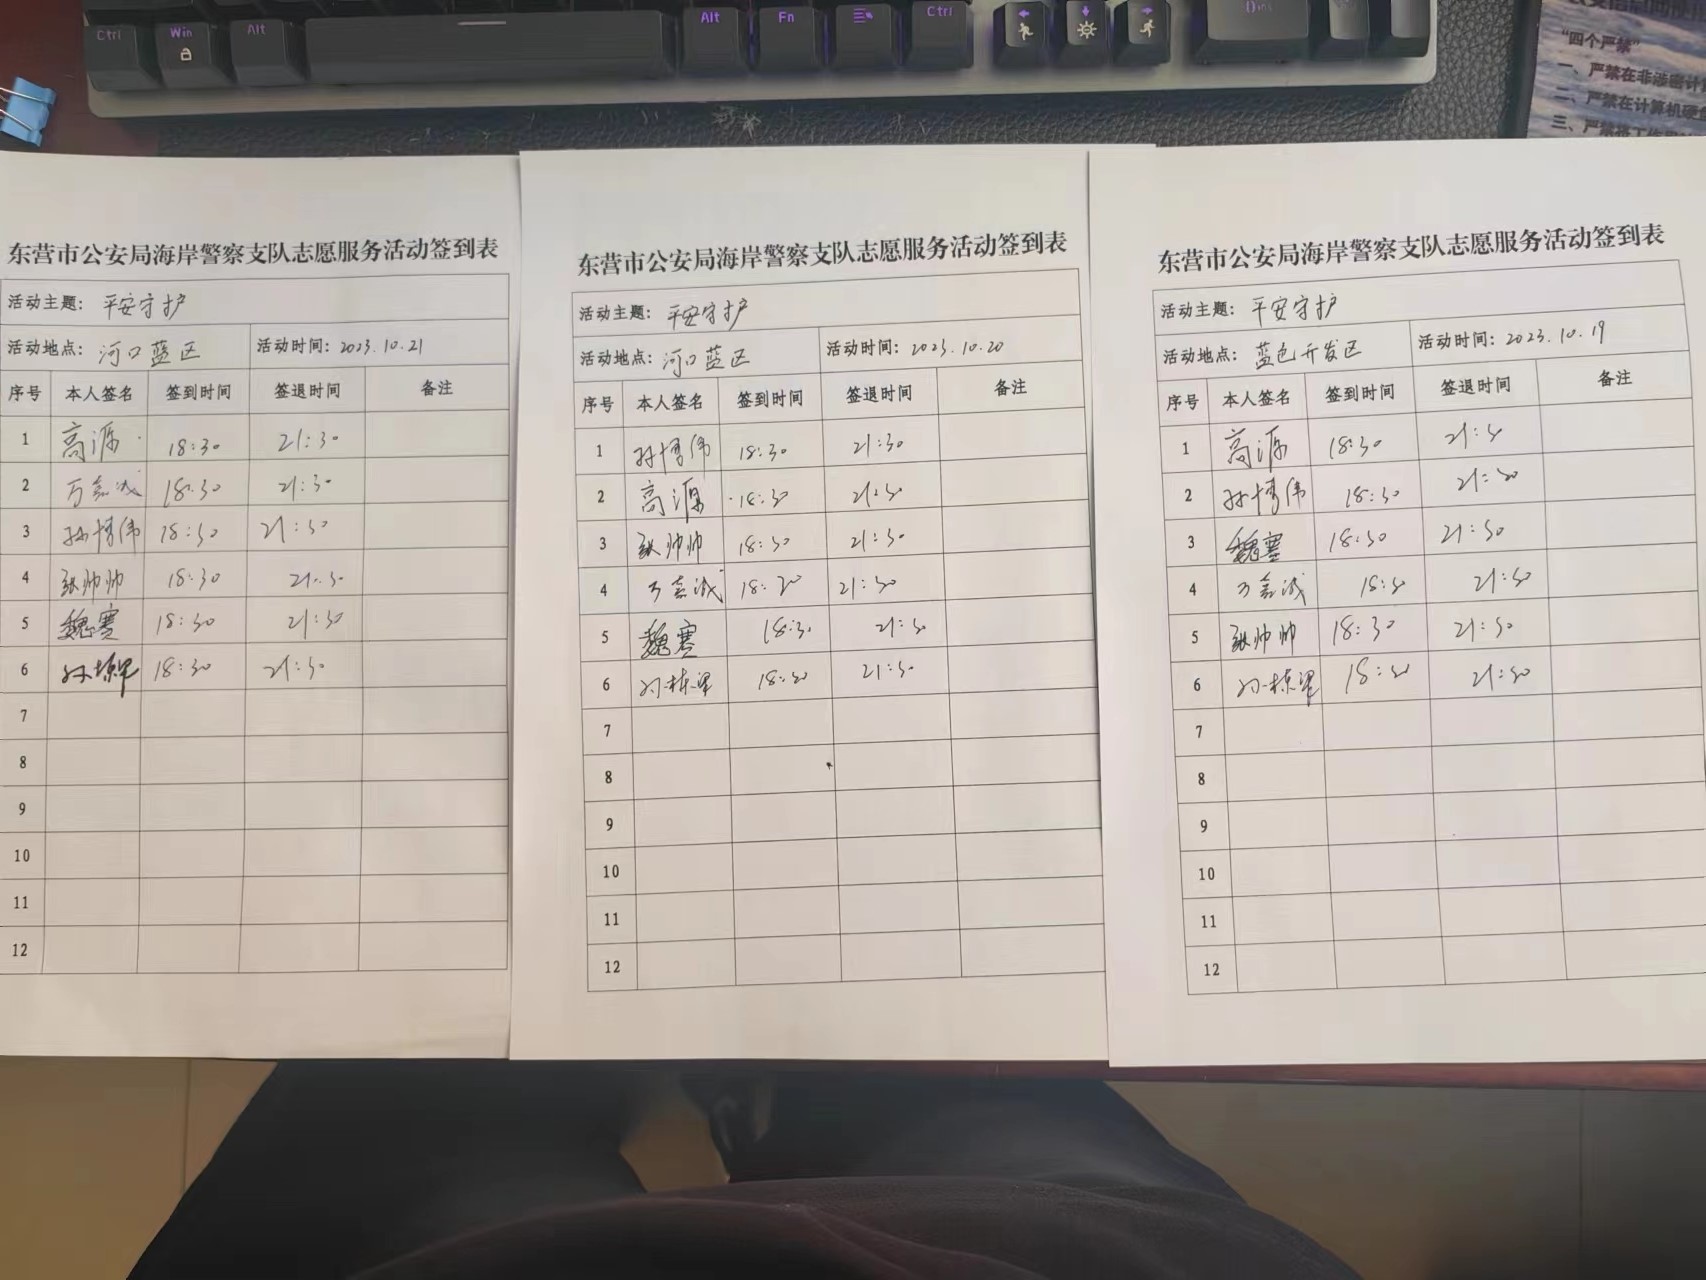 Ctrl Win Alt Alt Fn Ctrl
"四个严禁"
一、严禁在非涉密计
二、严禁在计算机硬
三、严禁将工作
东营市公安局海岸警察支队志愿服务活动签到表
活动主题：平安守护
活动地点：河口蓝区 活动时间：2023.10.21
序号 本人签名 签到时间 签退时间 备注
1 高源 18:30 21:30
2 万嘉诚 18:30 21:30
3 孙博伟 18:30 21:30
4 张帅帅 18:30 21:30
5 魏骞 18:30 21:30
6 18:30 21:30
7
8
9
10
11
12
东营市公安局海岸警察支队志愿服务活动签到表
活动主题：平安守护
活动地点：河口蓝区 活动时间：2023.10.20
序号 本人签名 签到时间 签退时间 备注
1 孙博伟 18:30 21:30
2 高源 18:30 21:30
3 张帅帅 18:30 21:30
4 万嘉诚 18:30 21:30
5 魏骞 18:30 21:30
6 孙栋梁 18:30 21:30
7
8
9
10
11
12
东营市公安局海岸警察支队志愿服务活动签到表
活动主题：平安守护
活动地点：蓝色开发区 活动时间：2023.10.19
序号 本人签名 签到时间 签退时间 备注
1 高源 18:30 21:30
2 孙博伟 18:30 21:30
3 魏骞 18:30 21:30
4 万嘉诚 18:30 21:30
5 张帅帅 18:30 21:30
6 孙栋梁 18:30 21:30
7
8
9
10
11
12